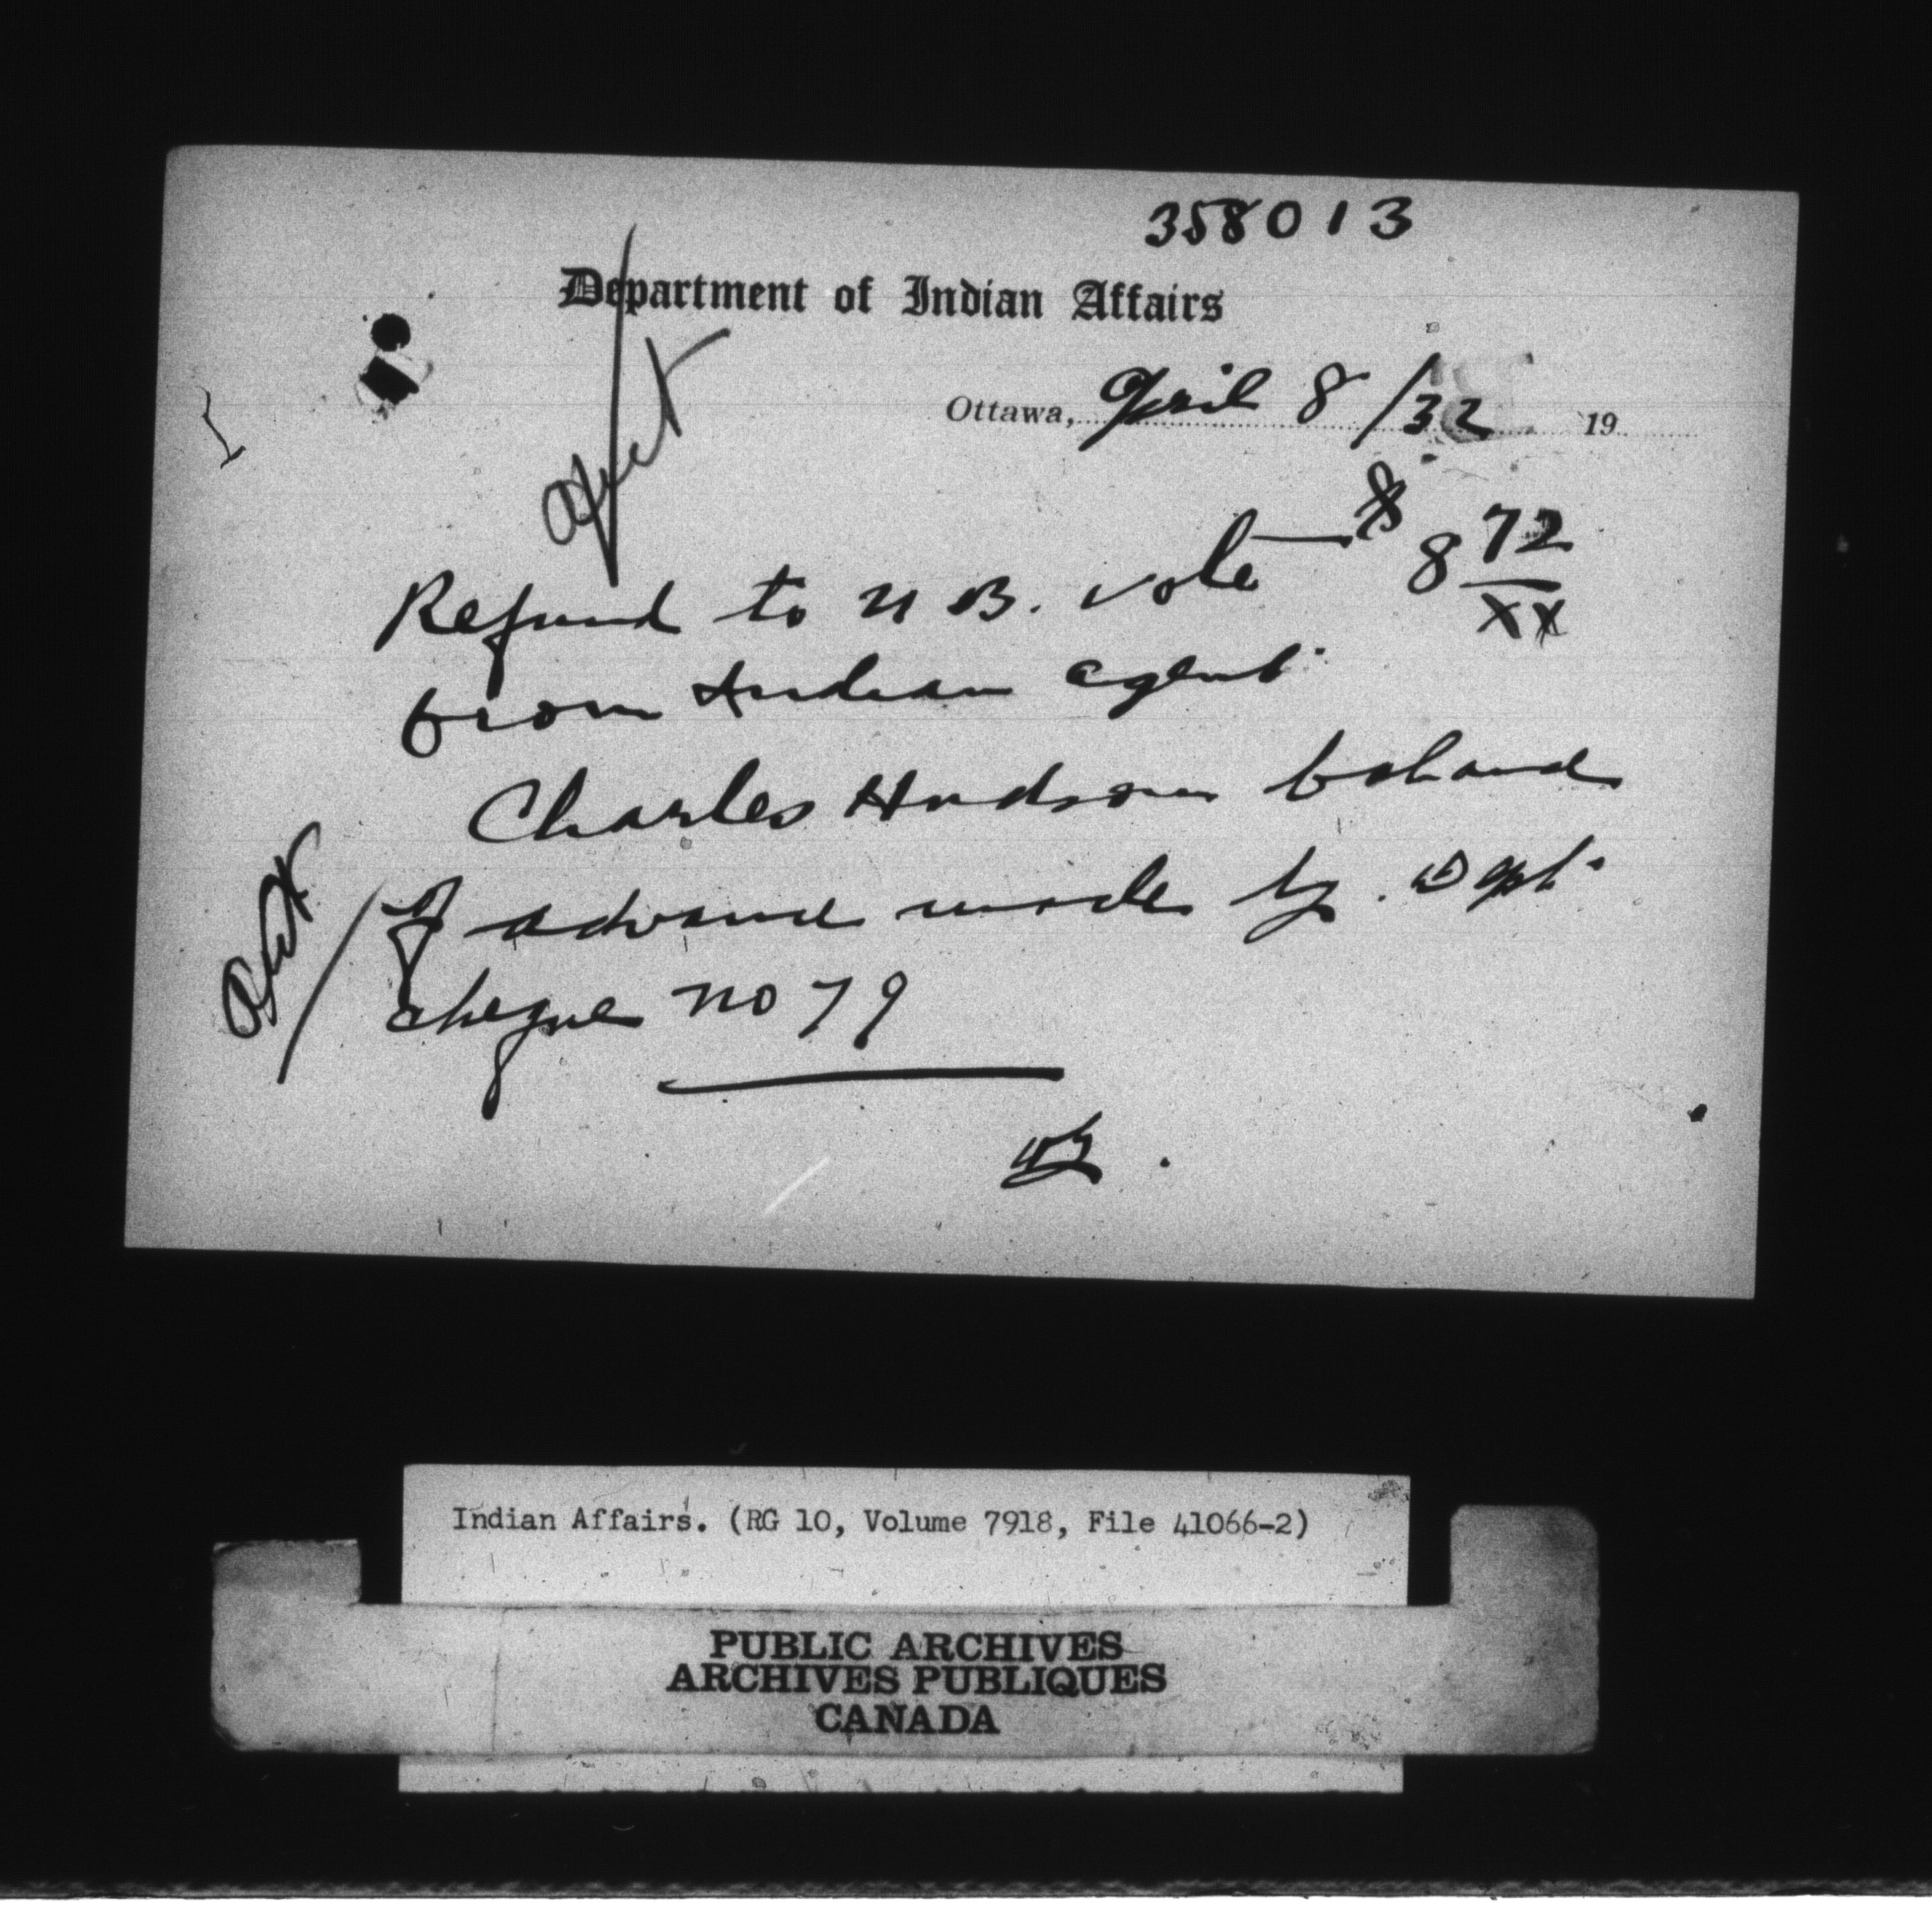 358013
Department of Indian Affairs
Ottawa, April 8/32 19
Acct
Refund to N B. vote $ 8 72/xx
from Indian agent
Charles Hudson balance
Acct
of advance made by Dept.
cheque no 79
Indian Affairs. (RG 10, Volume 7918, File 41066-2)
PUBLIC ARCHIVES
ARCHIVES PUBLIQUES
CANADA